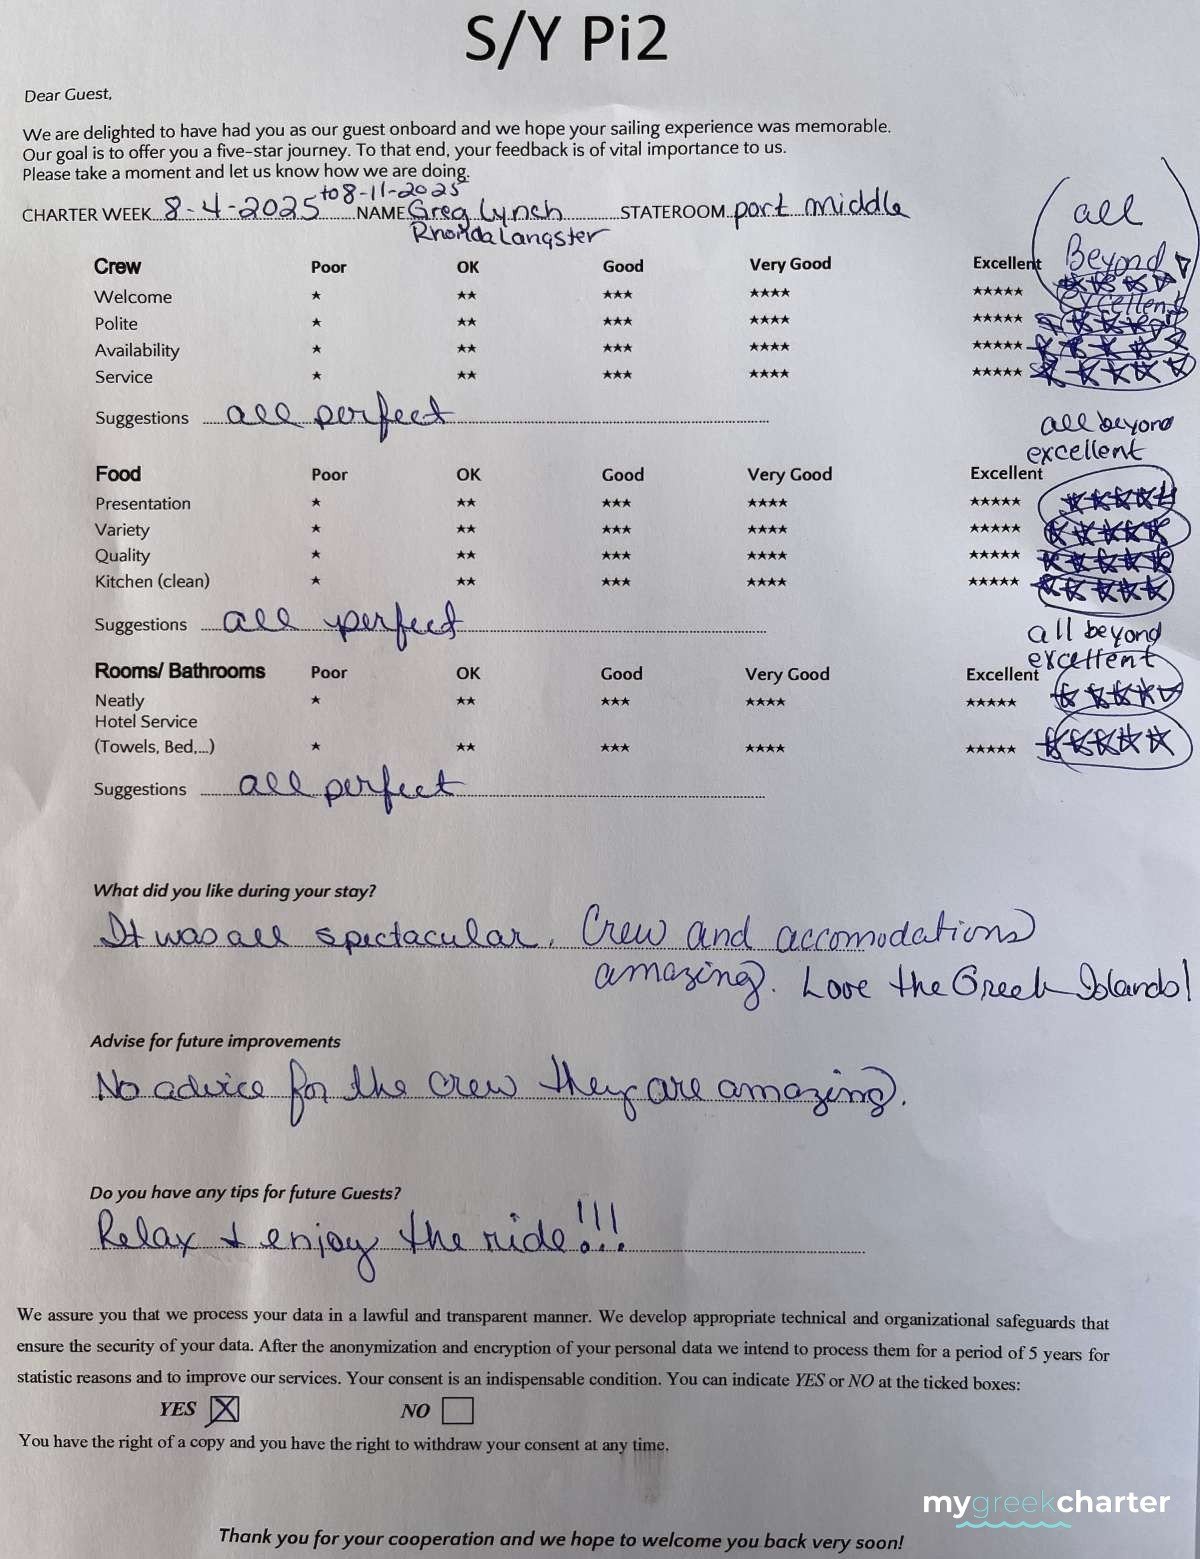 S/Y Pi2
Dear Guest,
We are delighted to have had you as our guest onboard and we hope your sailing experience was memorable.
Our goal is to offer you a five-star journey. To that end, your feedback is of vital importance to us.
Please take a moment and let us know how we are doing.
CHARTER WEEK 8-4-2025 to 8-11-2025 NAME Greg Lynch STATEROOM port middle
Rhonda Langster
all
Beyond
excellent
Crew Poor OK Good Very Good Excellent
Welcome ★ ★★ ★★★ ★★★★ ★★★★★
Polite ★ ★★ ★★★ ★★★★ ★★★★★
Availability ★ ★★ ★★★ ★★★★ ★★★★★
Service ★ ★★ ★★★ ★★★★ ★★★★★
Suggestions all perfect
all beyond
excellent
Food Poor OK Good Very Good Excellent
Presentation ★ ★★ ★★★ ★★★★ ★★★★★
Variety ★ ★★ ★★★ ★★★★ ★★★★★
Quality ★ ★★ ★★★ ★★★★ ★★★★★
Kitchen (clean) ★ ★★ ★★★ ★★★★ ★★★★★
Suggestions all perfect
all beyond
excellent
Rooms/ Bathrooms Poor OK Good Very Good Excellent
Neatly ★ ★★ ★★★ ★★★★ ★★★★★
Hotel Service
(Towels, Bed,...) ★ ★★ ★★★ ★★★★ ★★★★★
Suggestions all perfect
What did you like during your stay?
It was all spectacular. Crew and accomodations
amazing. Love the Greek Islands!
Advise for future improvements
No advice for the crew they are amazing.
Do you have any tips for future Guests?
Relax & enjoy the ride!!!
We assure you that we process your data in a lawful and transparent manner. We develop appropriate technical and organizational safeguards that
ensure the security of your data. After the anonymization and encryption of your personal data we intend to process them for a period of 5 years for
statistic reasons and to improve our services. Your consent is an indispensable condition. You can indicate YES or NO at the ticked boxes:
YES X NO
You have the right of a copy and you have the right to withdraw your consent at any time.
mygreekcharter
Thank you for your cooperation and we hope to welcome you back very soon!